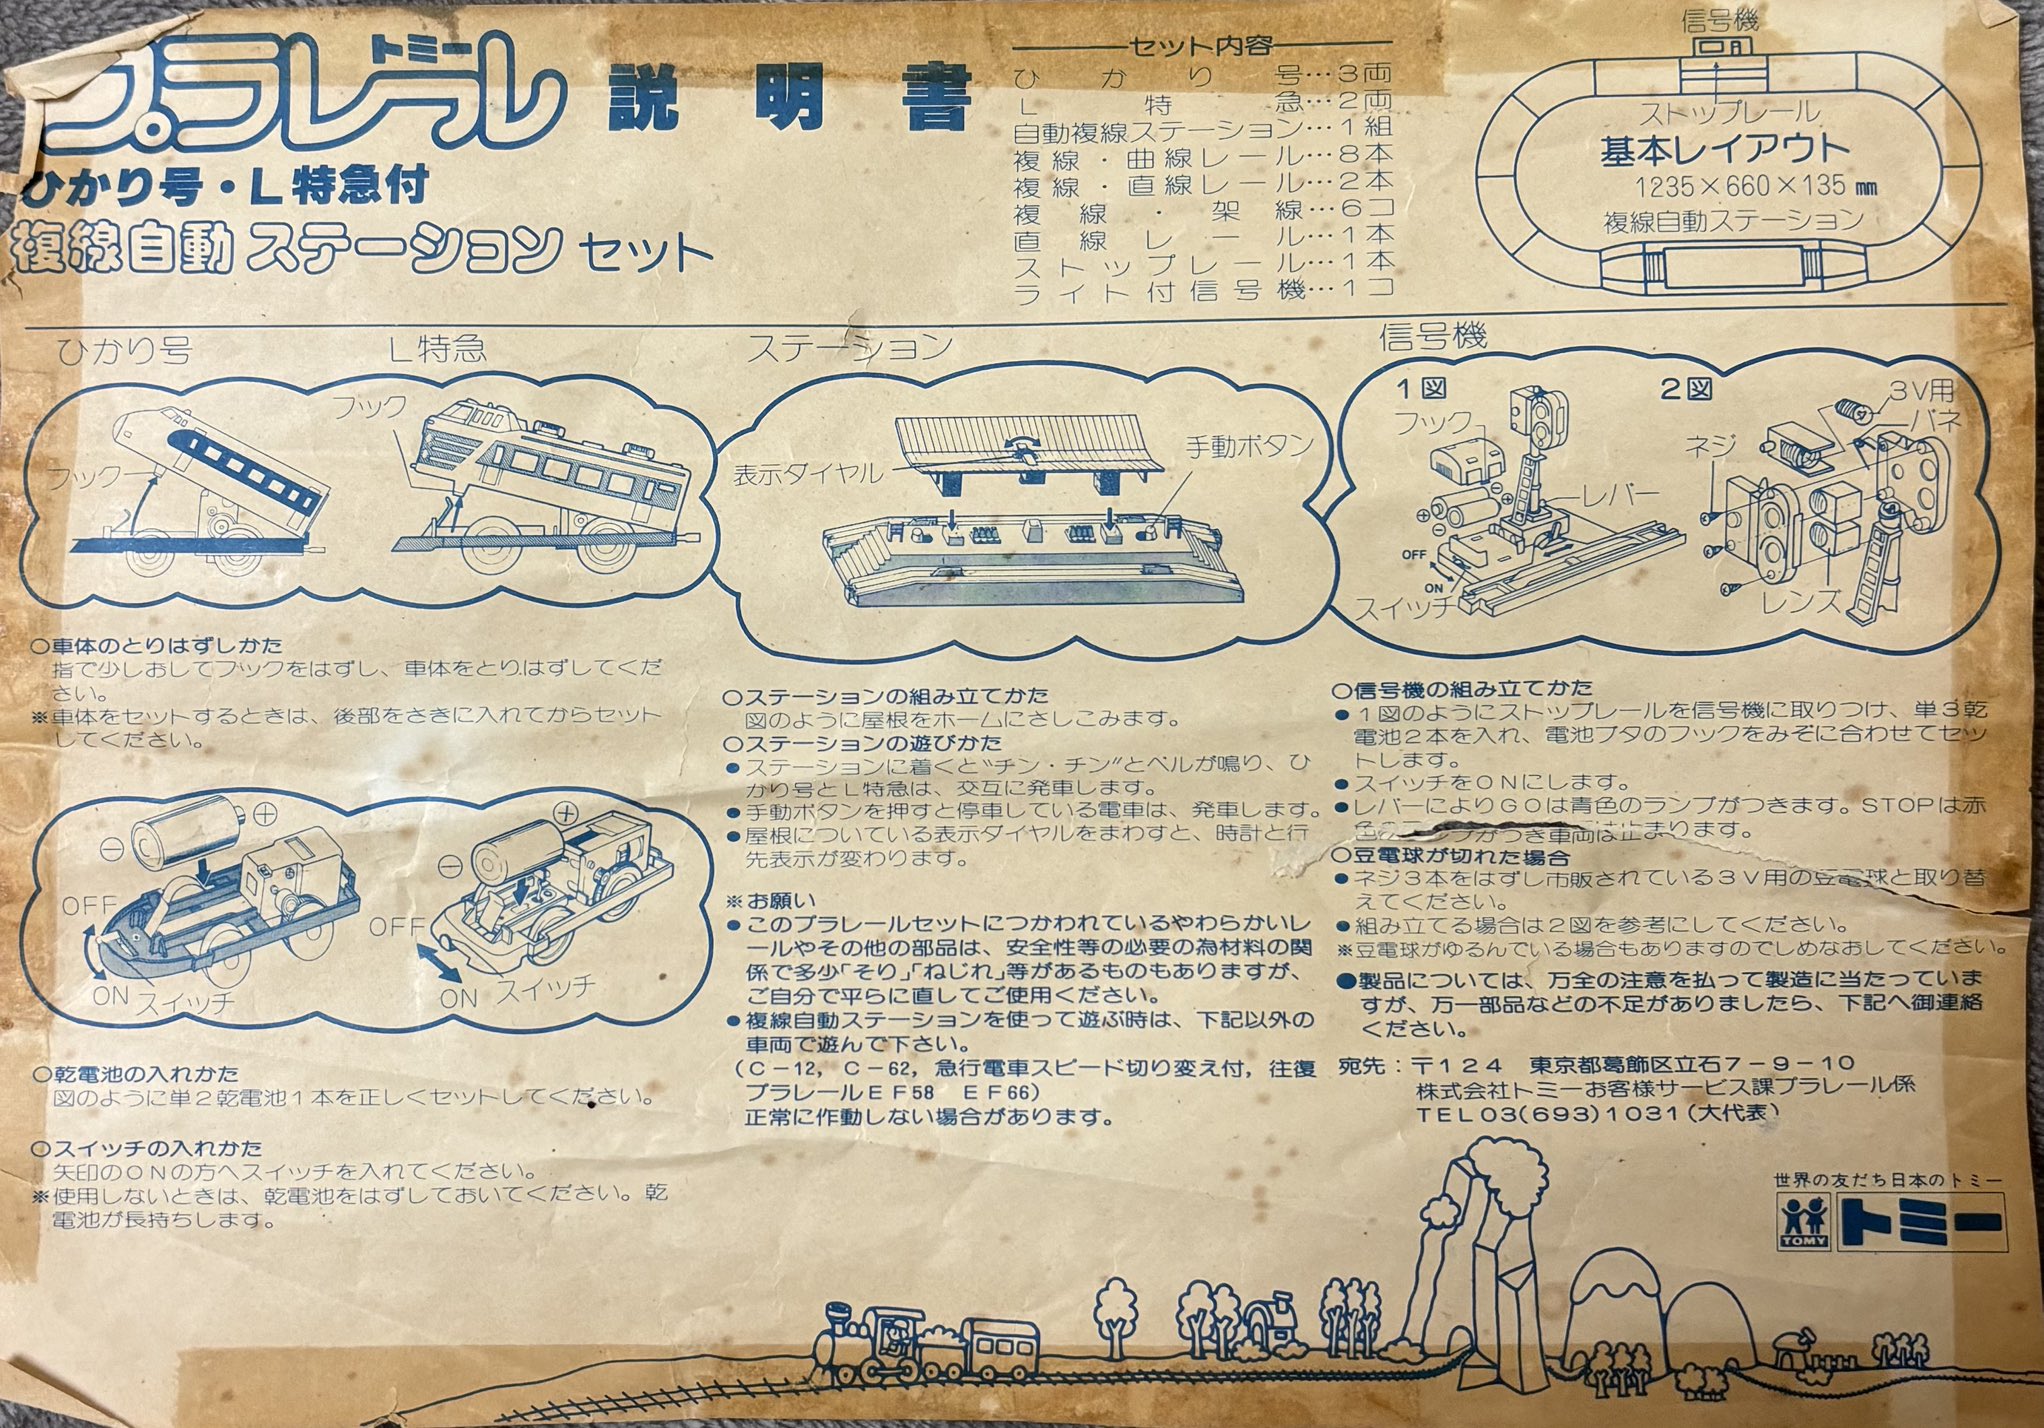 トミー
プラレール 説明書
ひかり号・L特急付
複線自動ステーションセット
セット内容
ひかり号…3両
L特急…2両
自動複線ステーション…1組
複線・曲線レール…8本
複線・直線レール…2本
複線・架線…6コ
直線レール…1本
ストップレール…1本
ライト付信号機…1コ
信号機
ストップレール
基本レイアウト
1235×660×135㎜
複線自動ステーション
ひかり号
フック
L特急
フック
ステーション
表示ダイヤル
手動ボタン
信号機
1図
フック
レバー
OFF
ON
スイッチ
2図
3V用
バネ
ネジ
レンズ
○車体のとりはずしかた
指で少しおしてフックをはずし、車体をとりはずしてくだ
さい。
※車体をセットするときは、後部をさきに入れてからセット
してください。
⊕
⊖
OFF
ON スイッチ
⊕
⊖
OFF
ON スイッチ
○乾電池の入れかた
図のように単2乾電池1本を正しくセットしてください。
○スイッチの入れかた
矢印のONの方へスイッチを入れてください。
※使用しないときは、乾電池をはずしておいてください。乾
電池が長持ちします。
○ステーションの組み立てかた
図のように屋根をホームにさしこみます。
○ステーションの遊びかた
●ステーションに着くと“チン・チン”とベルが鳴り、ひ
かり号とL特急は、交互に発車します。
●手動ボタンを押すと停車している電車は、発車します。
●屋根についている表示ダイヤルをまわすと、時計と行
先表示が変わります。
※お願い
●このプラレールセットにつかわれているやわらかいレ
ールやその他の部品は、安全性等の必要の為材料の関
係で多少「そり」「ねじれ」等があるものもありますが、
ご自分で平らに直してご使用ください。
●複線自動ステーションを使って遊ぶ時は、下記以外の
車両で遊んで下さい。
(C-12, C-62, 急行電車スピード切り変え付, 往復
プラレールEF58 EF66)
正常に作動しない場合があります。
○信号機の組み立てかた
●1図のようにストップレールを信号機に取りつけ、単3乾
電池2本を入れ、電池ブタのフックをみぞに合わせてセッ
トします。
●スイッチをONにします。
●レバーによりGOは青色のランプがつきます。STOPは赤
色のランプがつき車両は止まります。
○豆電球が切れた場合
●ネジ3本をはずし市販されている3V用の豆電球と取り替
えてください。
●組み立てる場合は2図を参考にしてください。
※豆電球がゆるんでいる場合もありますのでしめなおしてください。
●製品については、万全の注意を払って製造に当たっていま
すが、万一部品などの不足がありましたら、下記へ御連絡
ください。
宛先：〒124 東京都葛飾区立石7-9-10
株式会社トミーお客様サービス課プラレール係
TEL03(693)1031(大代表)
世界の友だち日本のトミー
TOMY
トミー